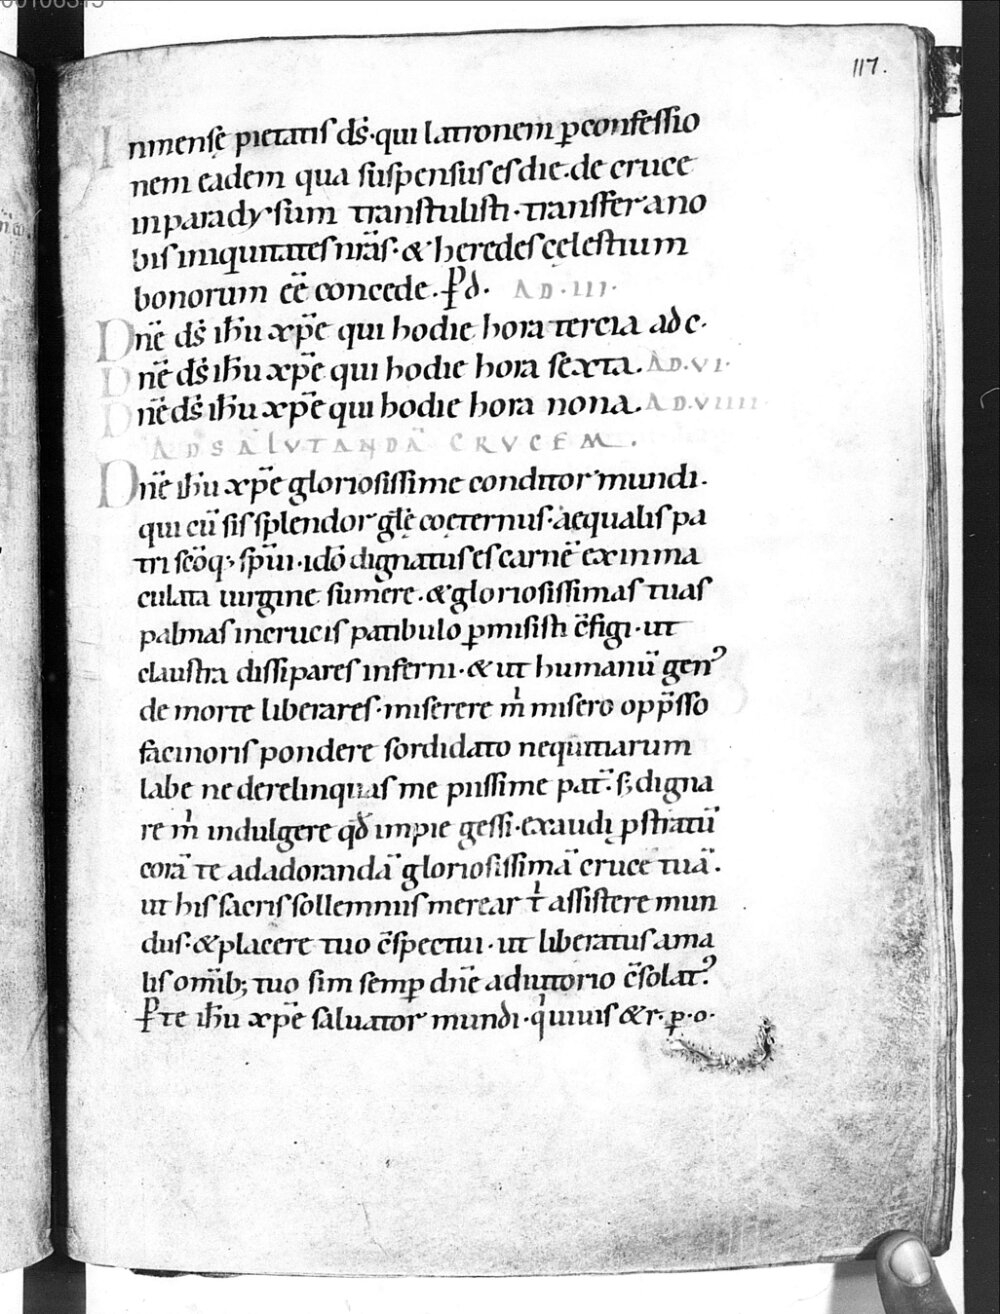 00106315
117.
Inmensę pietatis dś·qui latronem ꝑconfessio
nem eadem qua suspensus es die·de cruce
inparadysum transtulisti·transfer ano
bis iniquitates nr̄as·&heredes cęlestium
bonorum eē concede·ꝑd· AD·III·
Dnē dś ihū xpē qui hodie hora tercia adc·
Dnē dś ihū xpē qui hodie hora sexta· AD·VI·
Dnē dś ihū xpē qui hodie hora nona· AD·VIIII·
AD SALVTANDĀ CRVCEM·
Dnē ihū xpē gloriosissime conditor mundi·
qui cū sis splendor glę̄ coęternus·aequalis pa
tri scōq; spūi·idō dignatus es carnē exinma
culata uirgine sumere·&gloriosissimas tuas
palmas incrucis patibulo ꝑmisisti c̄figi·ut
claustra dissipares inferni·&ut humanū gen᾽
de morte liberares·miserere m̍ misero opp̄sso
facinoris pondere sordidato nequitiarum
labe nederelinquas me piissime pat̄·s;digna
re m̍ indulgere qđ impie gessi·exaudi ꝓstratū
corā te adadorandā gloriosissimā crucē tuā·
ut his sacris sollemniis merear t̍ assistere mun
dus·&placere tuo c̄spectui·ut liberatus ama
lis om̄ib; tuo sim semꝑ dnē adiutorio c̄solat᾽
Ꝑte ihū xpē saluator mundi·q̍uiuis &r·ꝑ·o·